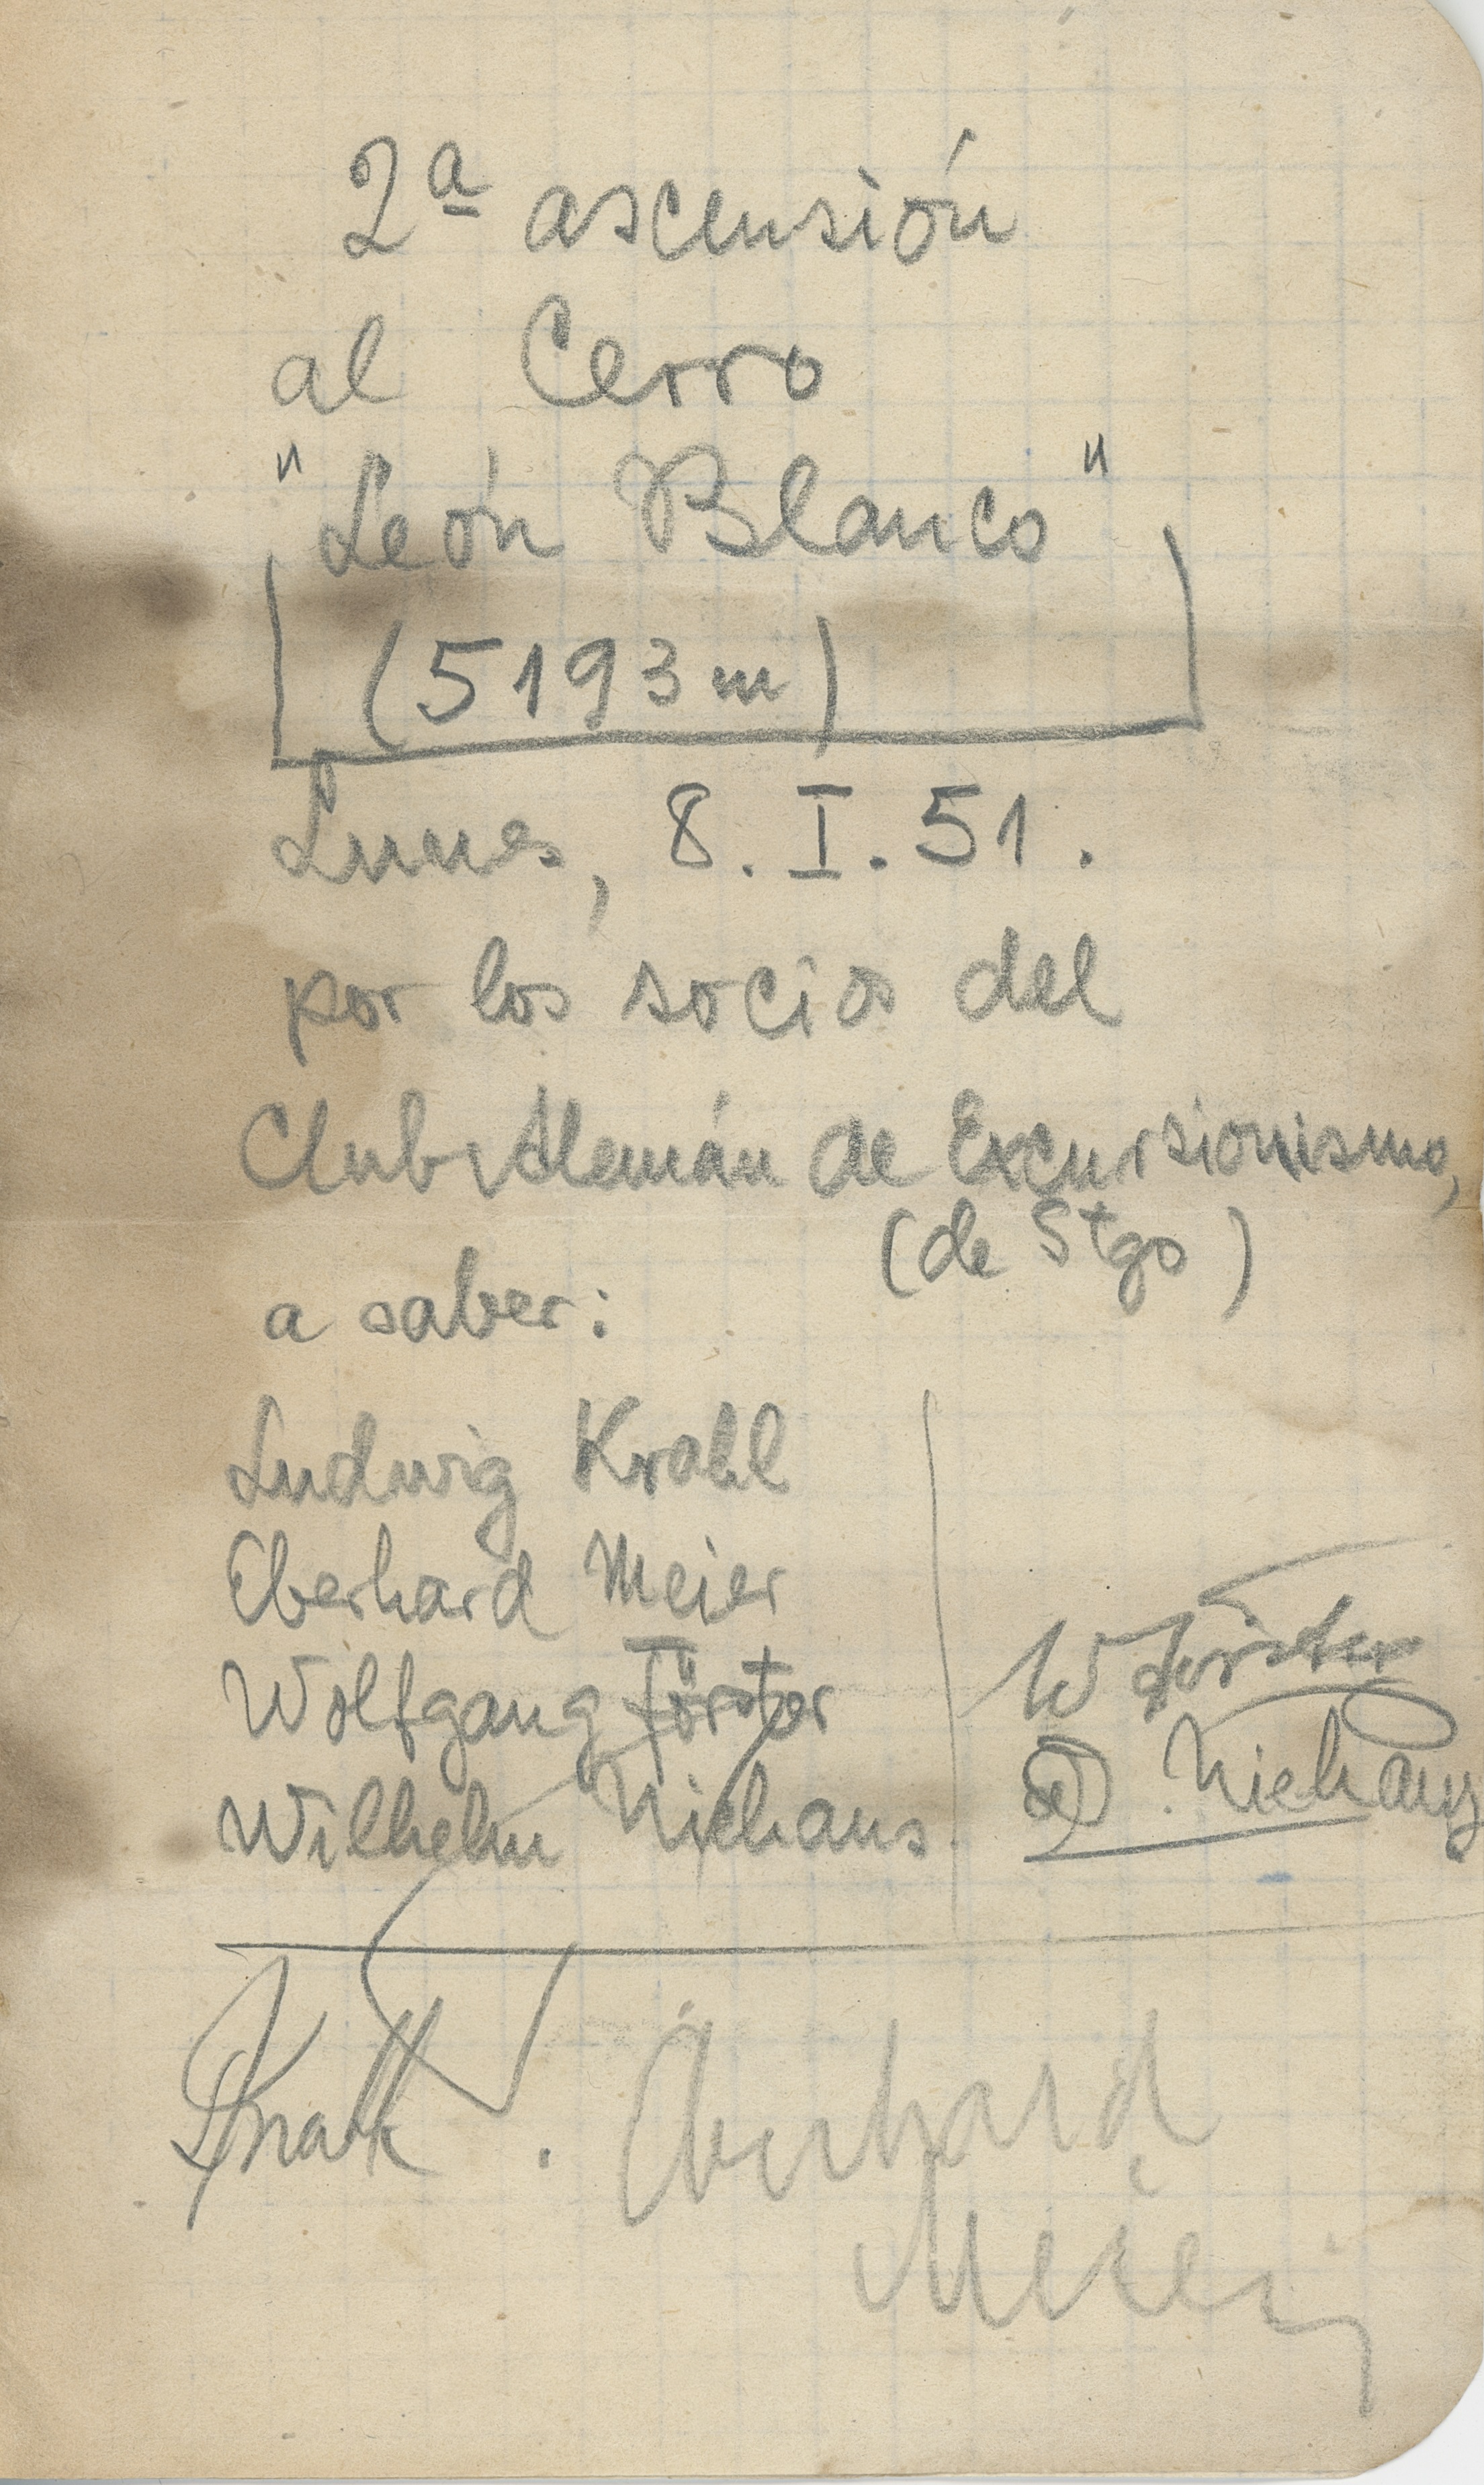 2ª ascensión
al Cerro
"León Blanco"
(5193 m)
Lunes, 8. I. 51.
por los socios del
Club Alemán de Excursionismo,
(de Stgo)
a saber:
Ludwig Krahl
Eberhard Meier
Wolfgang Förster
Wilhelm Niehaus
W Förster
W. Niehaus
LKrahl.
Eberhard
Meier